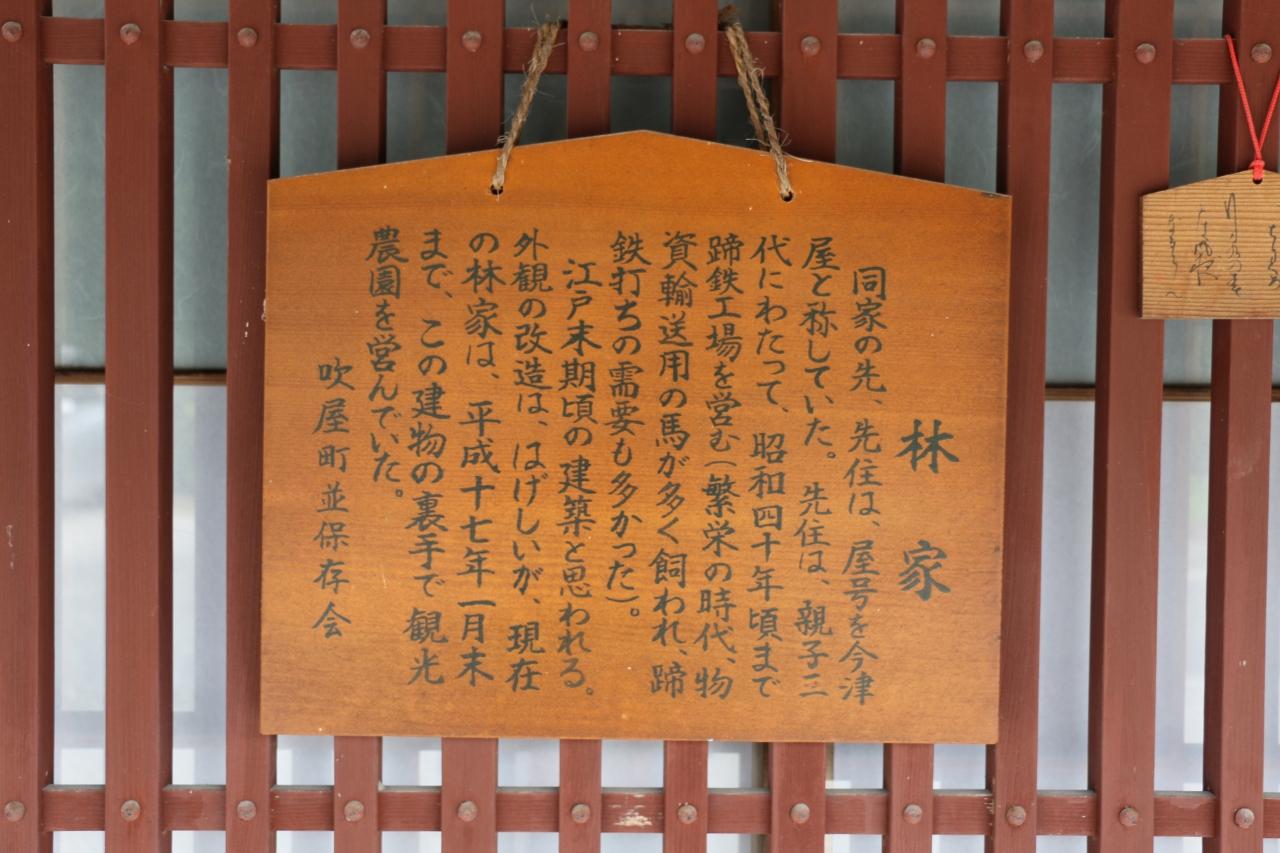 林家
同家の先、先住は、屋号を今津
屋と称していた。先住は、親子三
代にわたって、昭和四十年頃まで
蹄鉄工場を営む（繁栄の時代、物
資輸送用の馬が多く飼われ、蹄
鉄打ちの需要も多かった）。
江戸末期頃の建築と思われる。
外観の改造は、はげしいが、現在
の林家は、平成十七年一月末
まで、この建物の裏手で観光
農園を営んでいた。
吹屋町並保存会